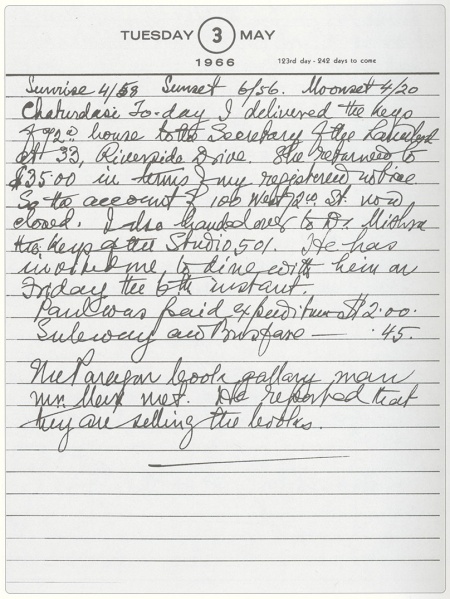 TUESDAY 3 MAY
1966
123rd day - 242 days to come
Sunrise 4/58 Sunset 6/56. Moonset 4/20
Chaturdasi To-day I delivered the keys
of 72nd house to the Secretary of the Landlord
at 33, Riverside Drive. She returned to
$35.00 in terms of my registered notice
So the account of 100 West 72nd St. now
closed. I also handed over to Dr Mishra
the keys of the Studio 501. He has
invited me to dine with him on
Friday the 6th instant.
Paul was paid expenditure $2.00.
Subway and Bus fare — .45.
The Paragon book gallary man
mr. met. He reported that
they are selling the books.